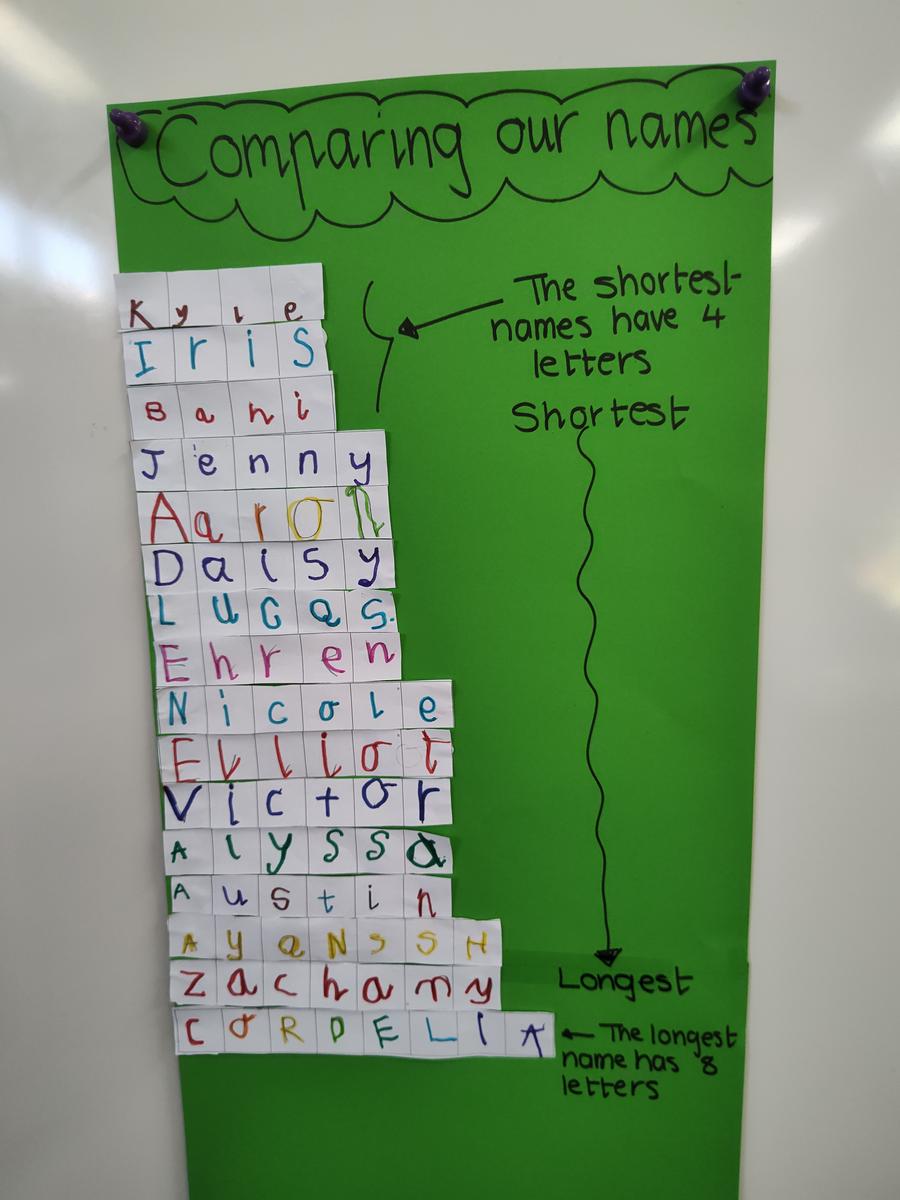 Comparing our names
Kyle
IriS
Bani
Jenny
Aaron
Daisy
Lucas.
Ehren
Nicole
Elliot
Victor
Alyssa
Austin
AyaNssH
Zachary
CORDELIA
The shortest
names have 4
letters
Shortest
Longest
The longest
name has 8
letters